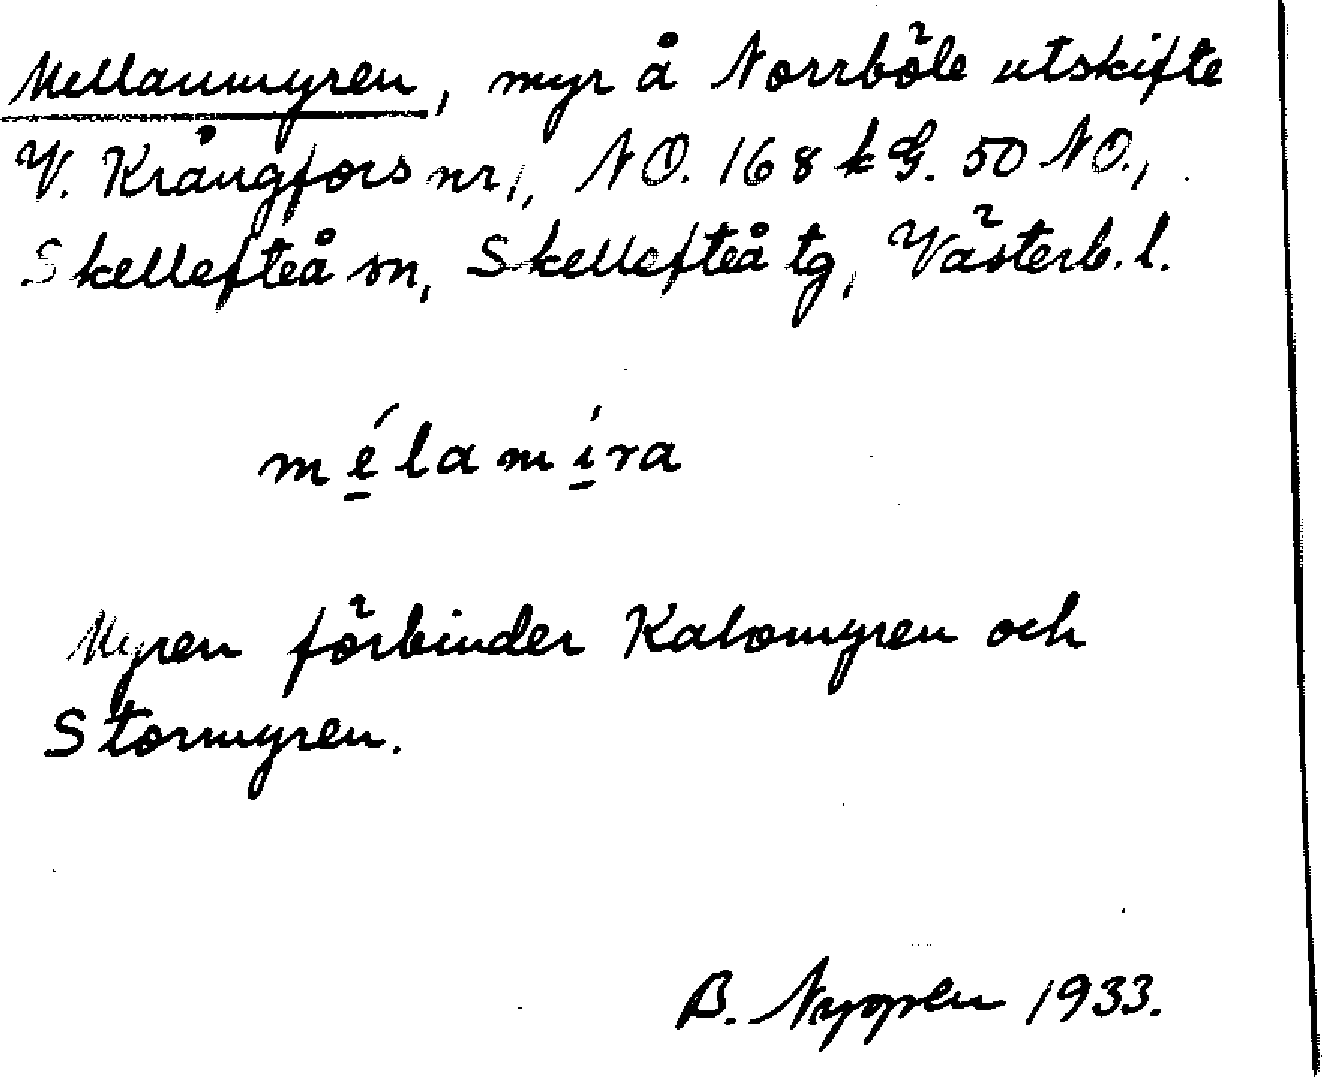 Mellanmyren, myr å Norrböle utskifte
V. Krångfors nr 1, NO. 168 k G. 50 NO.,
Skellefteå sn, Skellefteå tg, Västerb. l.
mélamíra
Myren förbinder Kalvmyren och
Stormyren.
B. 1933.